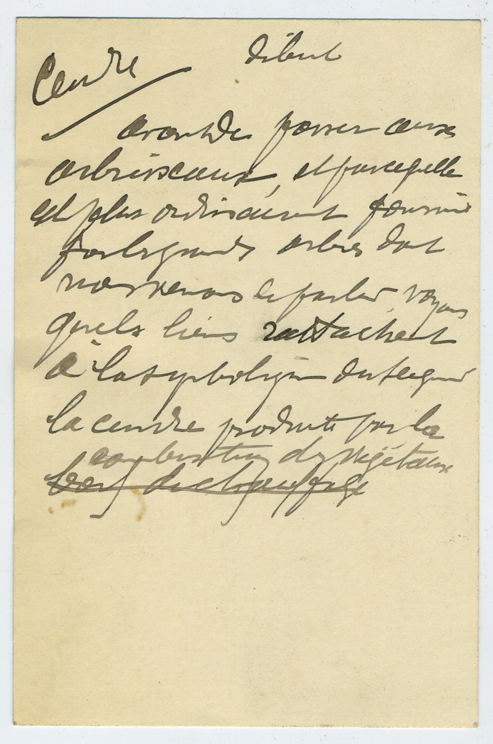 Cendre début
avant de passer aux
arbrisseaux, et parce qu'elle
est plus ordinairement fournie
par les grands arbres dont
nous venons de parler voyons
quels liens rattachent
à la symbolique du
la cendre produite par la
combustion des végétaux
bois de chauffage